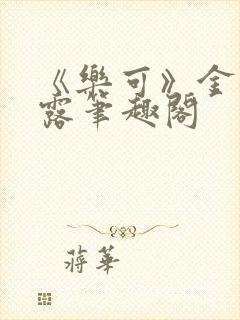 《樂可》金
露筆趣閣
蔣華